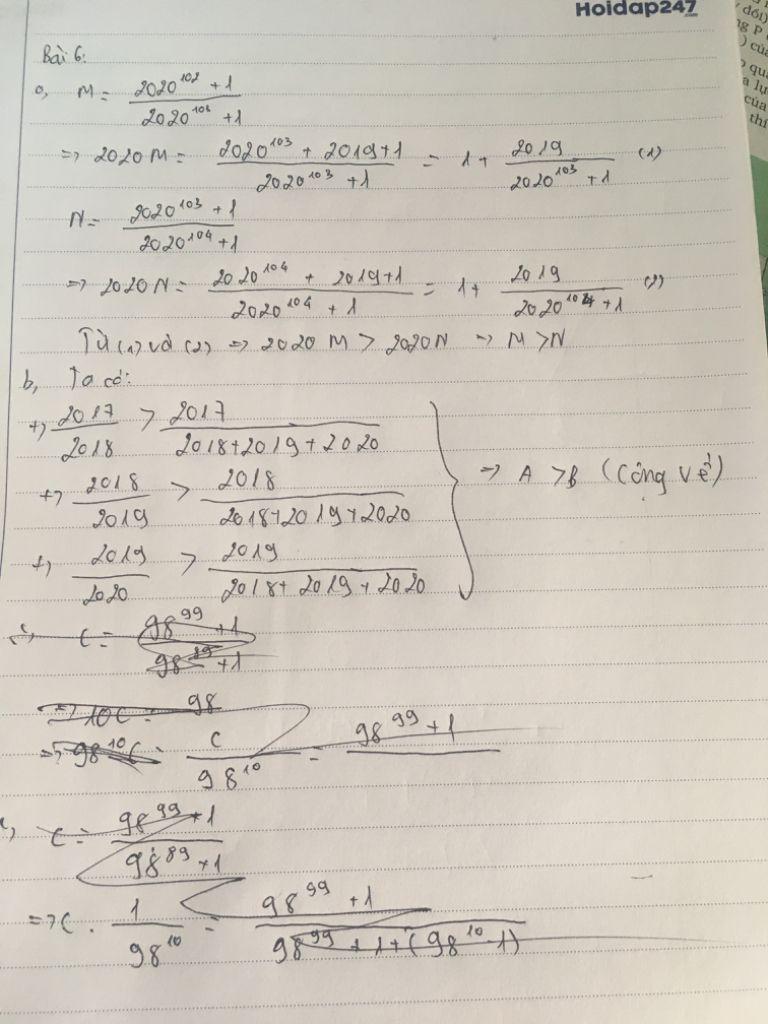 Hoidap247
.com
đối)
ng P
) của
qu
a lụ
của
thí
Bài 6:
a, M = \frac{2020^{102} + 1}{2020^{103} + 1}
=> 2020 M = \frac{2020^{103} + 2019 + 1}{2020^{103} + 1} = 1 + \frac{2019}{2020^{103} + 1} (1)
N = \frac{2020^{103} + 1}{2020^{104} + 1}
=> 2020 N = \frac{2020^{104} + 2019 + 1}{2020^{104} + 1} = 1 + \frac{2019}{2020^{104} + 1} (2)
Từ (1) và (2) => 2020 M > 2020 N => M > N
b, Ta có:
+, \frac{2017}{2018} > \frac{2017}{2018 + 2019 + 2020}
+, \frac{2018}{2019} > \frac{2018}{2018 + 2019 + 2020} => A > B (Cộng vế)
+, \frac{2019}{2020} > \frac{2019}{2018 + 2019 + 2020}
c, C = \frac{98^{99} + 1}{98^{89} + 1}
=> 10C = 98
=> 98^{10} C = \frac{C}{98^{10}} = \frac{98^{99} + 1}{}
c, C = \frac{98^{99} + 1}{98^{89} + 1}
=> C . \frac{1}{98^{10}} = \frac{98^{99} + 1}{98^{99} + 1 + (98^{10} - 1)}